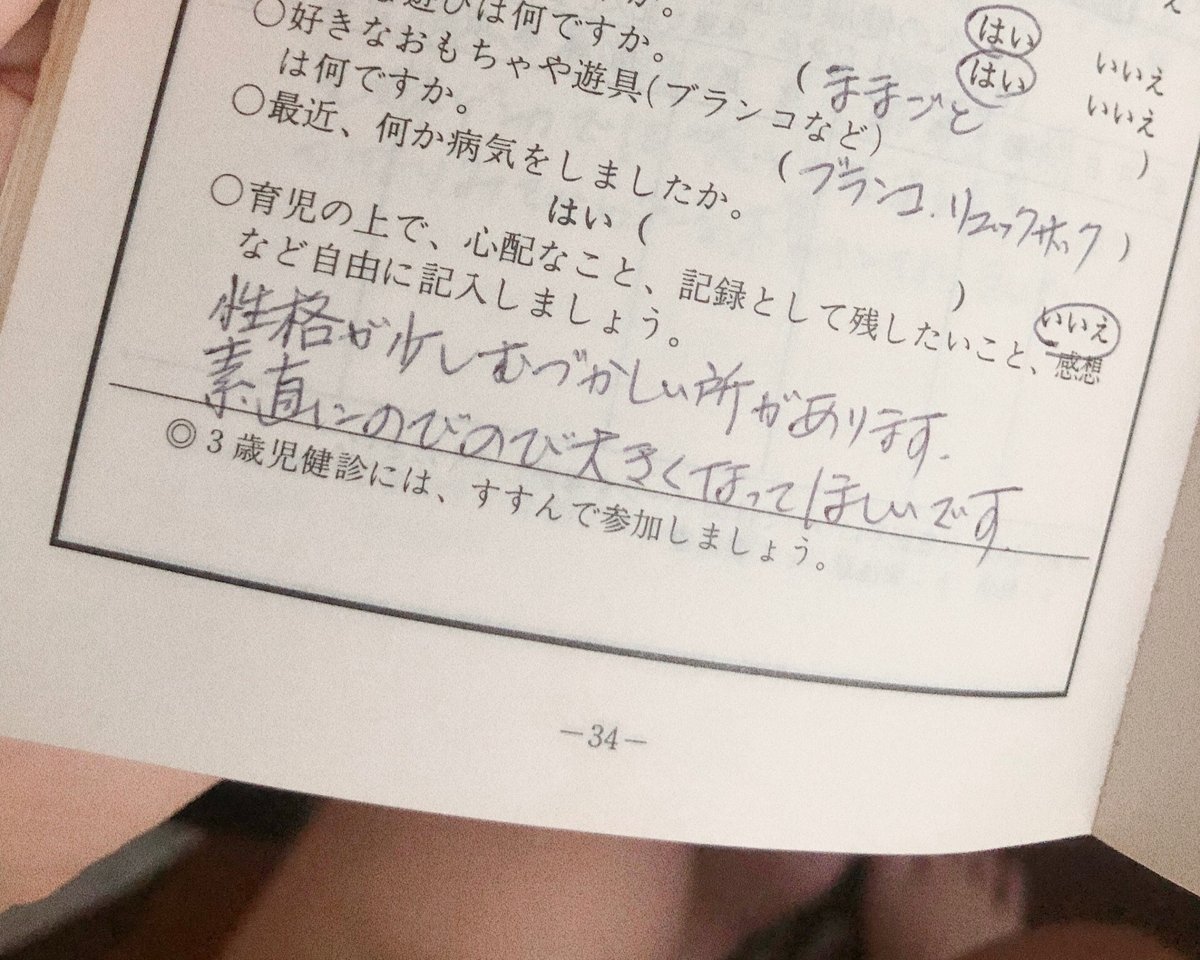 遊びは何ですか。
はい いいえ
はい いいえ
(ままごと )
○好きなおもちゃや遊具(ブランコなど)
は何ですか。
(ブランコ.リュックサック)
○最近、何か病気をしましたか。
はい( ) いいえ
○育児の上で、心配なこと、記録として残したいこと、感想
など自由に記入しましょう。
性格が少しむづかしい所があります.
素直にのびのび大きくなってほしいです.
◎3歳児健診には、すすんで参加しましょう。
―34―